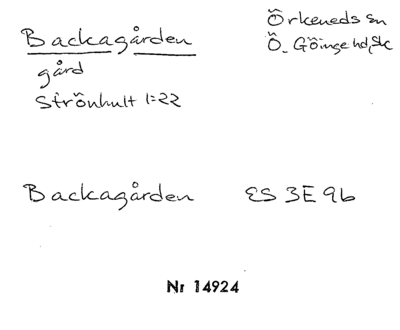 Backagården
Örkeneds sn
Ö. Göinge hd, Sk
gård
Strönhult 1=22
Backagården ES 3E 9b
Nr 14924